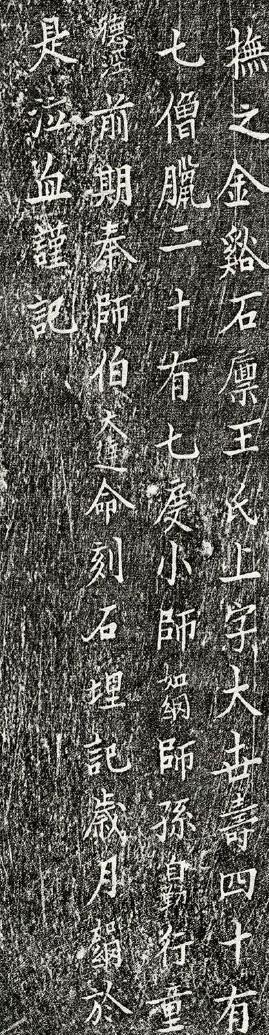 撫之金谿石廪王氏上字大世壽四十有
七僧臘二十有七度小師如絅師孫自勤行童
德澄前期奉師伯大連命刻石埋記歲月絅於
是泣血謹記